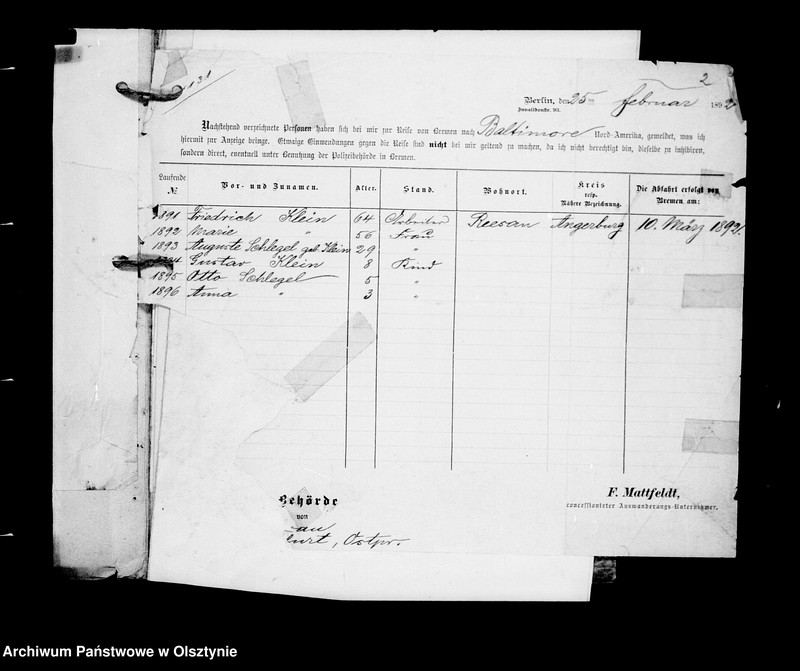 2
Berlin, den 25ten Februar 1892
Invalidenstr. 93.
Nachstehend verzeichnete Personen haben sich bei mir zur Reise von Bremen nach Baltimore Nord-Amerika, gemeldet, was ich
hiermit zur Anzeige bringe. Etwaige Einwendungen gegen die Reise sind nicht bei mir geltend zu machen, da ich nicht berechtigt bin, dieselbe zu inhibiren,
sondern direct, eventuell unter Benutzung der Polizeibehörde in Bremen.
Laufende № Vor- und Zunamen. Alter. Stand. Wohnort. Kreis resp. Nähere Bezeichnung. Die Abfahrt erfolgt von Bremen am:
1891 Friedrich Klein 64 Arbeiter Reesau Angerburg 10. März 1892.
1892 Marie " 56 Frau
1893 Auguste Schlegel geb. Klein 29 "
1894 Gustav Klein 8 Kind
1895 Otto Schlegel 5 "
1896 Anna " 3 "
Behörde
von
F. Mattfeldt,
concessionirter Auswanderungs-Unternehmer.
Ostpr.
Archiwum Państwowe w Olsztynie